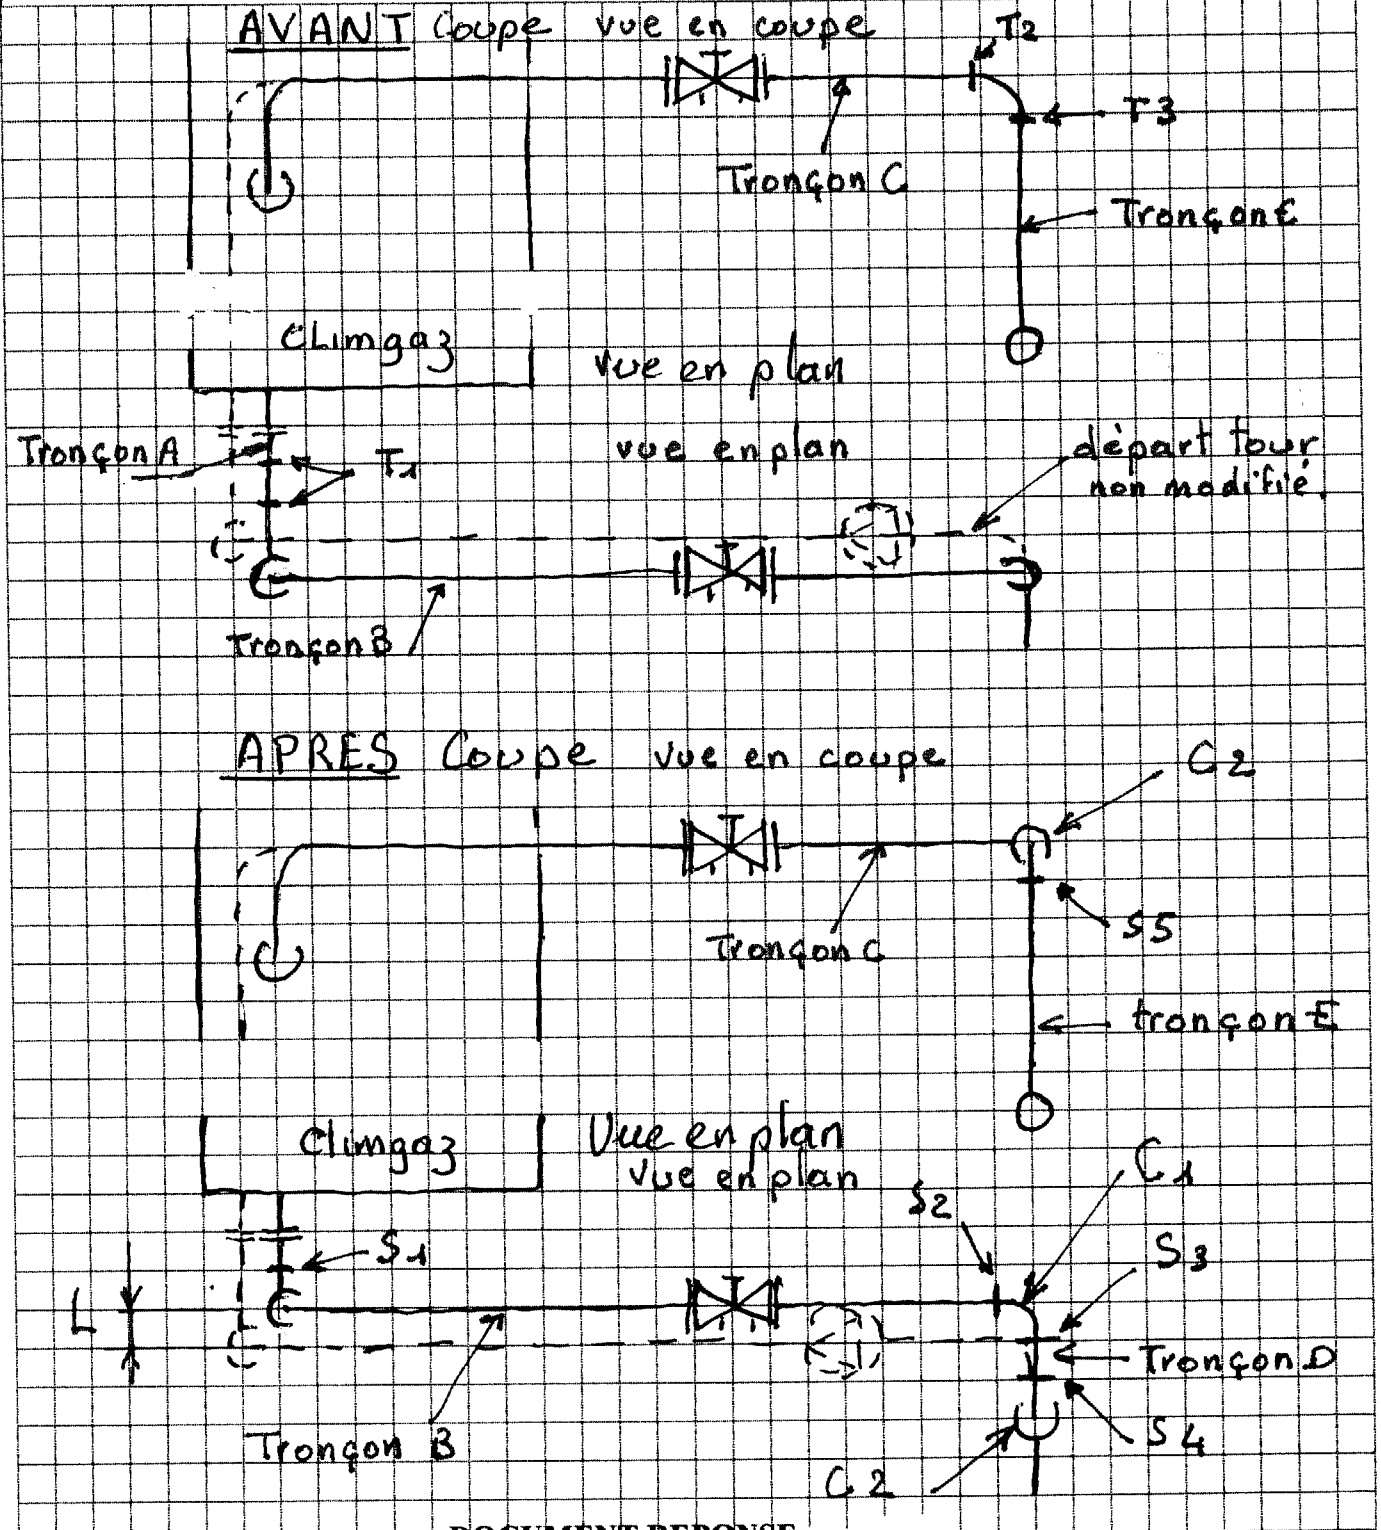 AVANT Coupe vue en coupe
T2
T3
Tronçon C
Tronçon E
Climgaz
vue en plan
Tronçon A
T1
vue en plan
départ tour
non modifié.
Tronçon B
APRES Coupe vue en coupe
C2
S5
Tronçon C
tronçon E
Climgaz
Vue en plan
vue en plan
C1
S2
S1
S3
L
Tronçon D
Tronçon B
S4
C2
DOCUMENT REPONSE